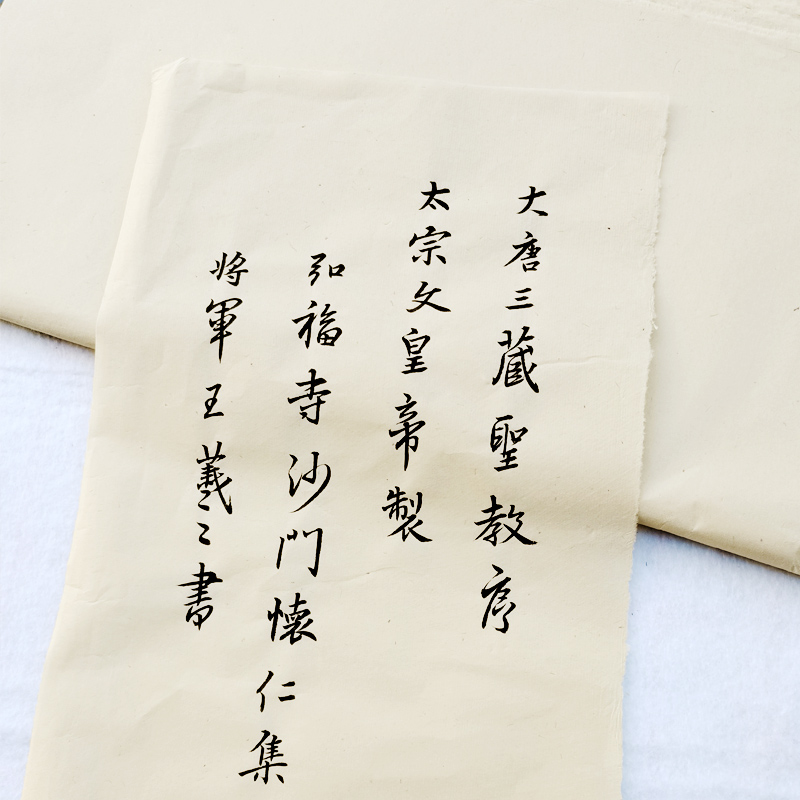 大唐三藏聖教序
太宗文皇帝製
弘福寺沙門懐仁集
將軍王羲之書